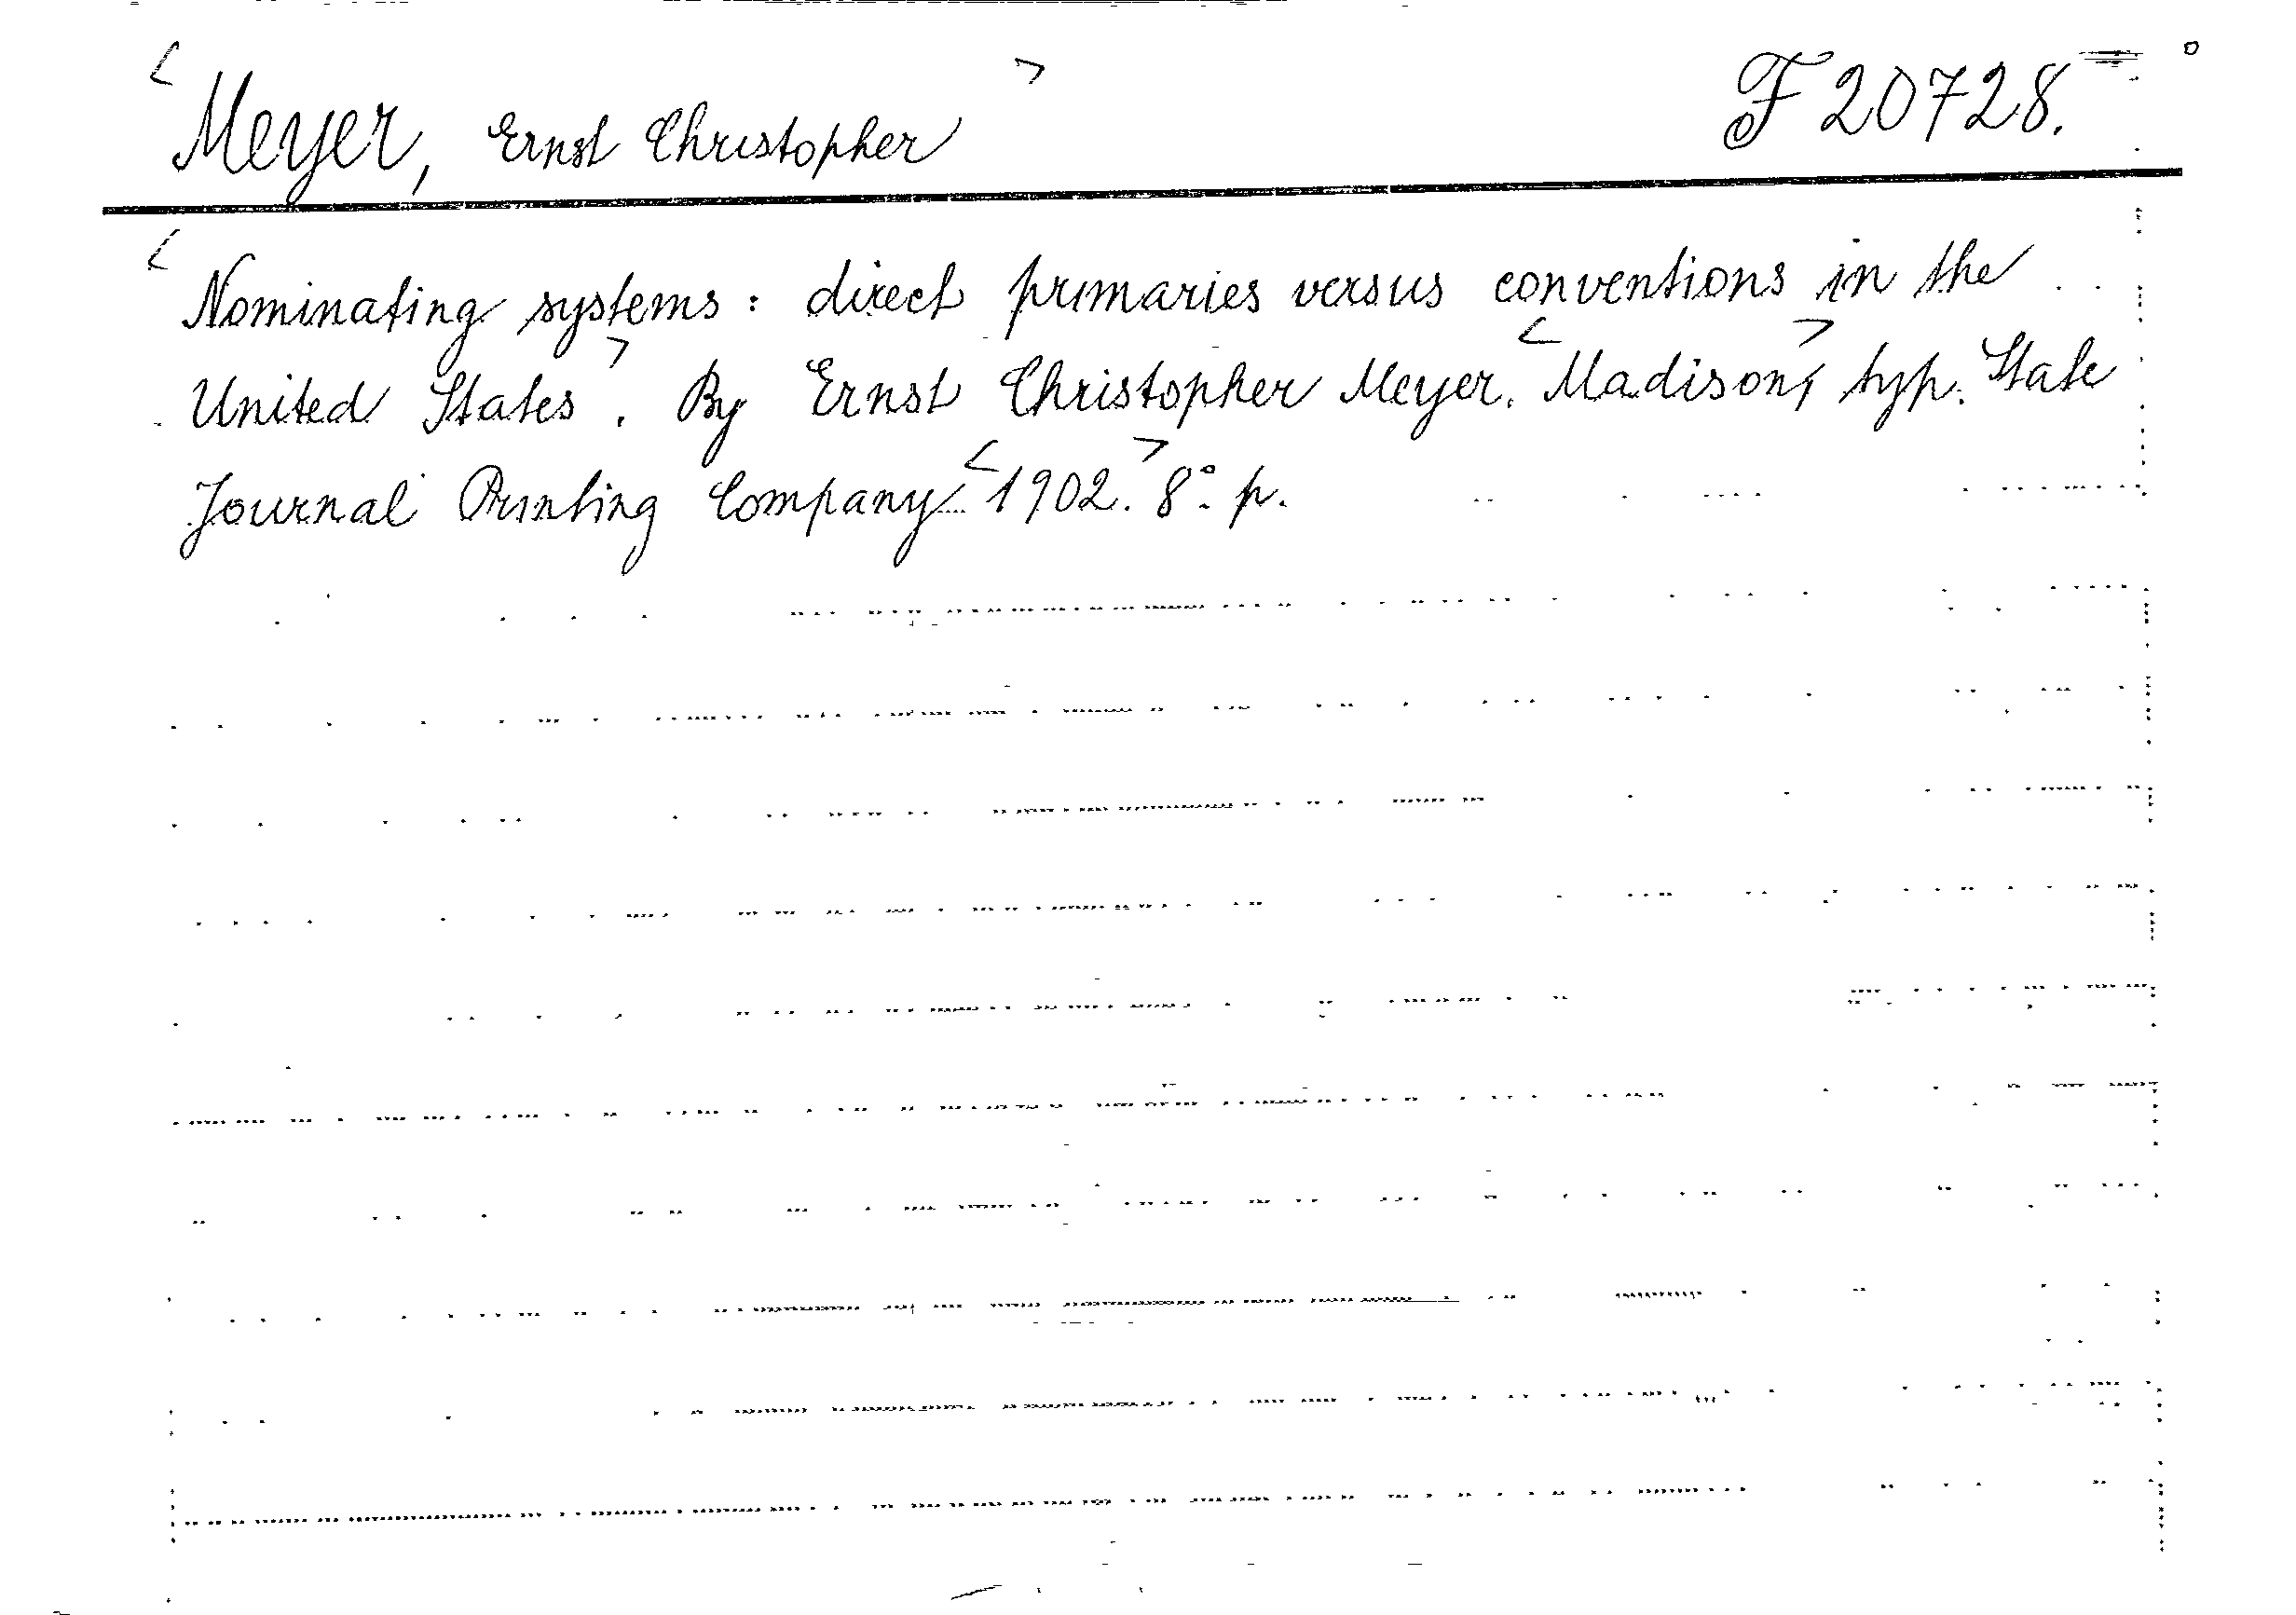 <Meyer, Ernst Christopher> F 20728.
<Nominating systems: direct primaries versus conventions in the
United States>. By Ernst Christopher Meyer. <Madison>, typ. State
Journal Printing Company <1902.> 8°. p.